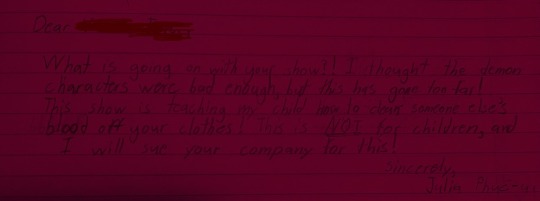 Dear
What is going on with your show?! I thought the demon
characters were bad enough, but this has gone too far!
This show is teaching my child how to clean someone else's
blood off your clothes! This is NOT for children, and
I will sue your company for this!
Sincerely,
Julia